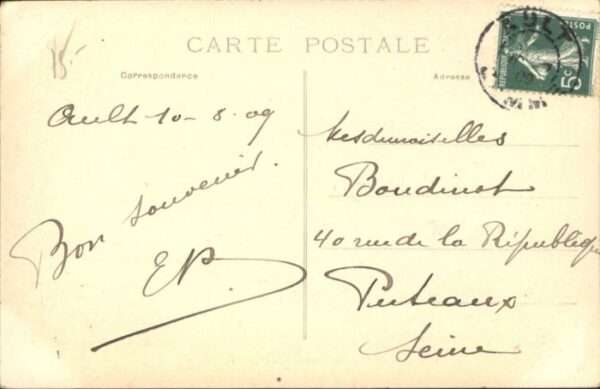 15-
CARTE POSTALE
Correspondance
Adresse
AULT
5c
Ault 10-8.09
Bon souvenir.
EP
Mesdemoiselles
Boudinot
40 rue de la République
Puteaux
Seine